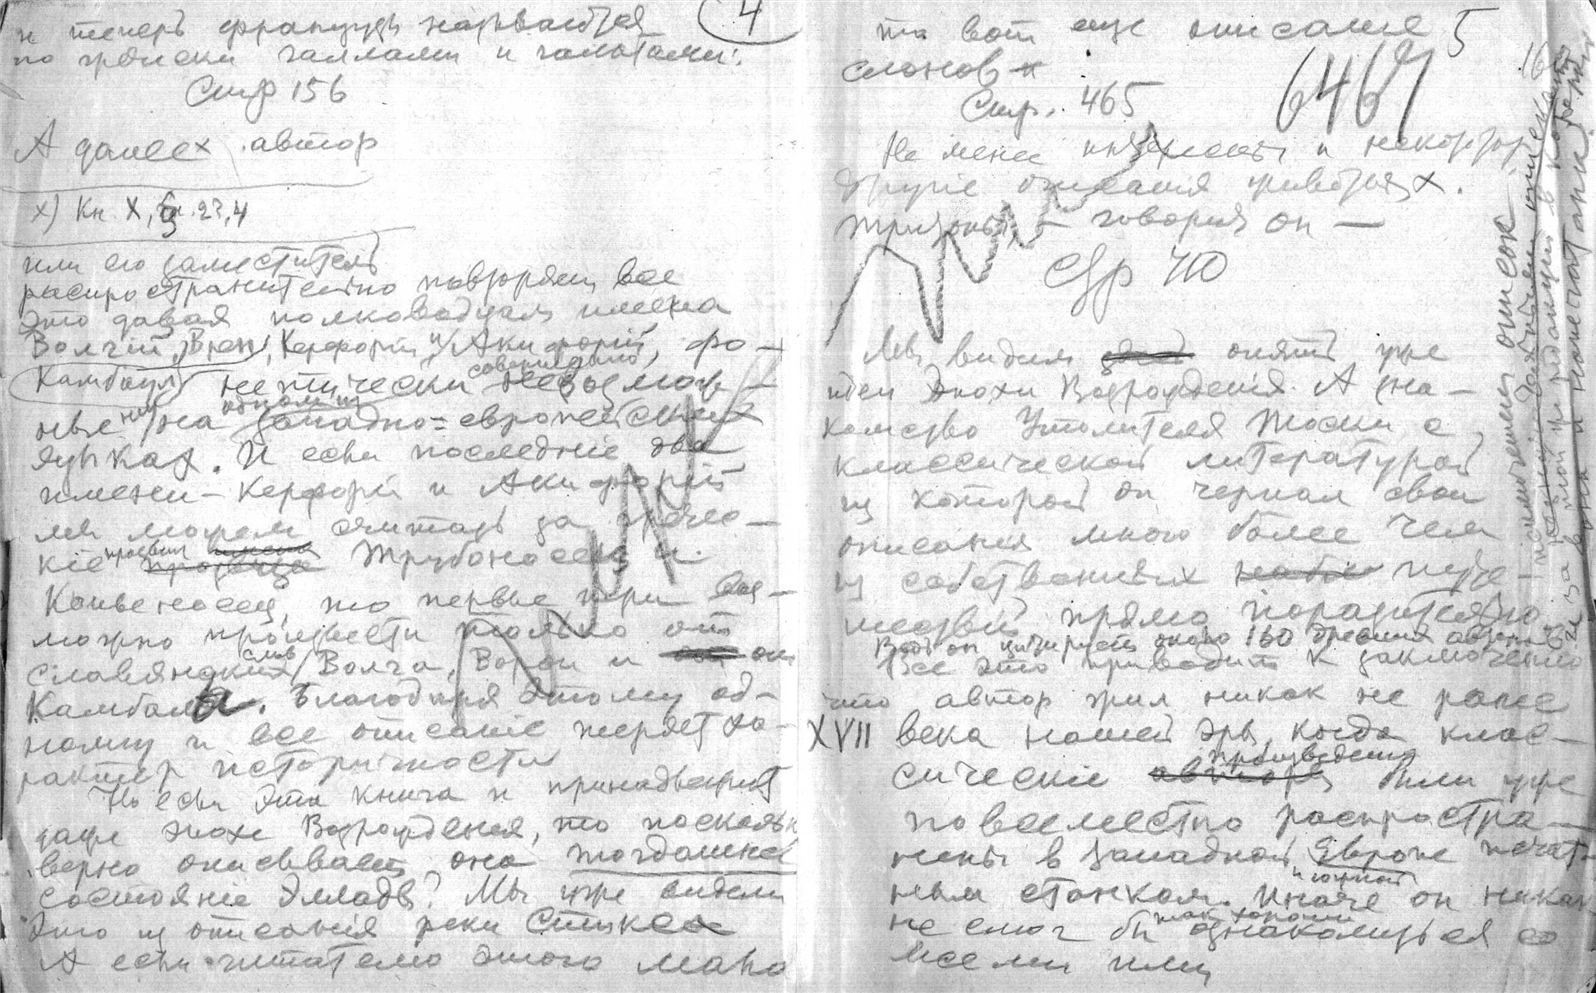 и теперь французы называются
по гречески галлами и галатами:
Стр 156
А далеех автор
х) Кн. X, гл. 22, 4
или его заместитель
распространительно повторяет все
это давая полководцам имена
Волчий, Врен, Керефорий и Акифорий, фо-
Камбаул нетически совершенно невозмож-
ные ни на одном из западно-европейских
языках. И если последние два
имени - Керефорий и Акифорий
мы можем считать за гречес-
кіе прозвища Трубоносец и
Копьеносец, то первые три воз-
можно произвести только от
славянских слов Волга, Ворон и от
Камбала. Благодаря этому од-
ному и все описаніе теряет ха-
рактер историчности
Но если эта книга и принадлежит
даже эпохе Возрождения, то насколько
верно описывает она тогдашнее
состояніе Эллады? Мы уже видели
это из описанія реки Стикса
А если читателю этого мало
4
то вот еще описание 5
слонов
Стр. 465
6467
Не менее интересны и некоторые
другіе описания животных.
Тритоны, - говорит он -
Стр 470
Мы видим опять уже
идеи Эпохи Возрождения. А зна-
комство Утолителя Тоски с
классической литературой
из которой он черпал свои
описания много более чем
из собственных путе-
шествий прямо поразительно.
Ведь он цитирует около 150 древних авторов
Все это приводит к заключению
что автор жил никак не ранее
XVII века нашей эры, когда клас-
сическіе произведения были уже
повсеместно распростра-
нены в Западной Европе печат-
ным станком. Иначе он никак
не смог бы так хорошо ознакомиться со
всеми ими